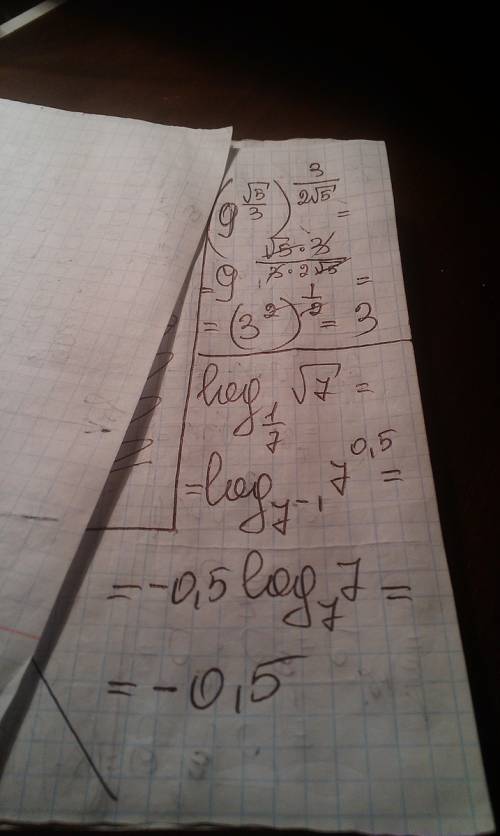 (9^(√5/3))^(3/(2√5)) =
= 9^((√5·3)/(3·2√5)) =
= (3^2)^(1/2) = 3
log_(1/7) √7 =
= log_(7^-1) 7^0,5 =
= -0,5 log_7 7 =
= -0,5